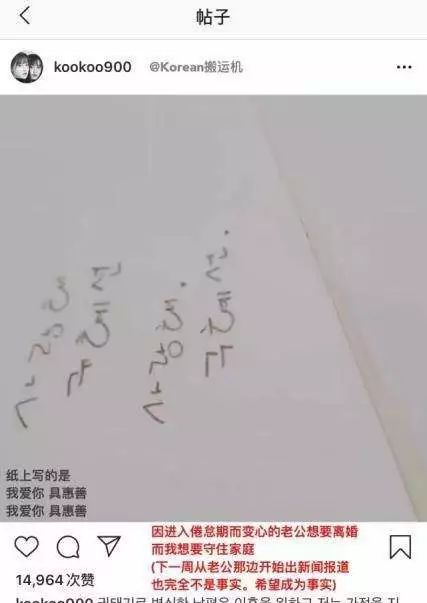 帖子
kookoo900 @Korean搬运机
纸上写的是
我爱你 具惠善
我爱你 具惠善
因进入倦怠期而变心的老公想要离婚
而我想要守住家庭
(下一周从老公那边开始出新闻报道
也完全不是事实。希望成为事实)
14,964次赞
kookoo900 권태기로 변심한 남편은 이혼을 원하고 저는 가정을 지